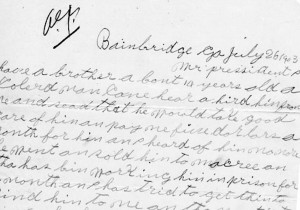 Bainbridge Ga July 26 1903
Mr pressident
have a brother a bout 14 years old a
Colerd man Came hear a hird him from
me and said that he would take good
care of him an pay me five dollars a
month for him an I heard of him no more
he went an sold him to macree an
tha has bin working him in prison for
month an I has trid to get thin to
send him to me an